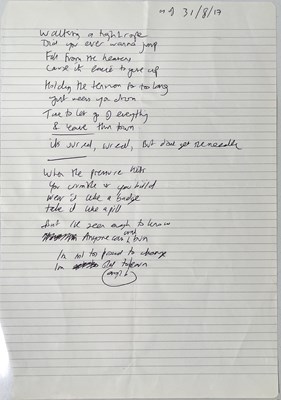 31/8/17
Walking a high rope
Did you ever wanna jump
Fall from the heavens
Cause it's easier to give up
Holding the tension for too long
Just wears you down
Time to let go of everything
& leave this town
its wired, wired, But don't get the needle
When the pressure hits
You crumble or you build
Wear it like a badge
take it like a pill
But I've seen enough to know
Anyone can burn
I'm not too proud to change
I'm old to learn